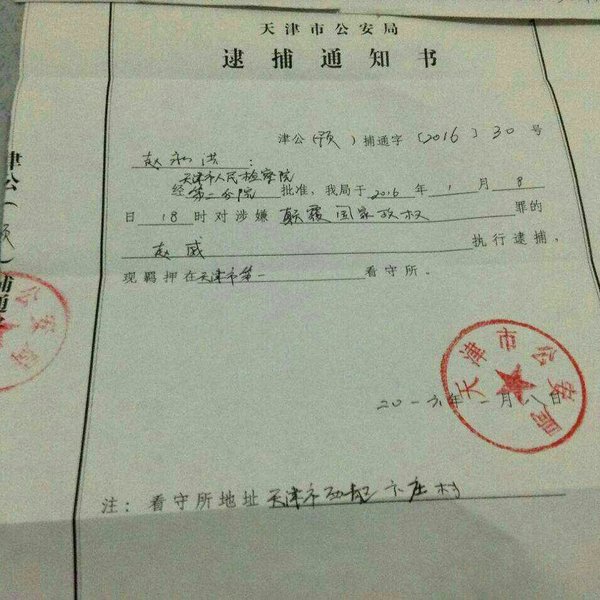 天津市公安局
逮捕通知书
津公(预)捕通字〔2016〕30号
赵 洪:
天津市人民检察院
经 第二分院 批准,我局于 2016 年 1 月 8
日 18 时对涉嫌 颠覆国家政权 罪的
赵威 执行逮捕,
现羁押在 天津市第一 看守所。
二〇一六年一月八日
天津市公安局
注:看守所地址 天津市 庄村
津公(预)捕通字